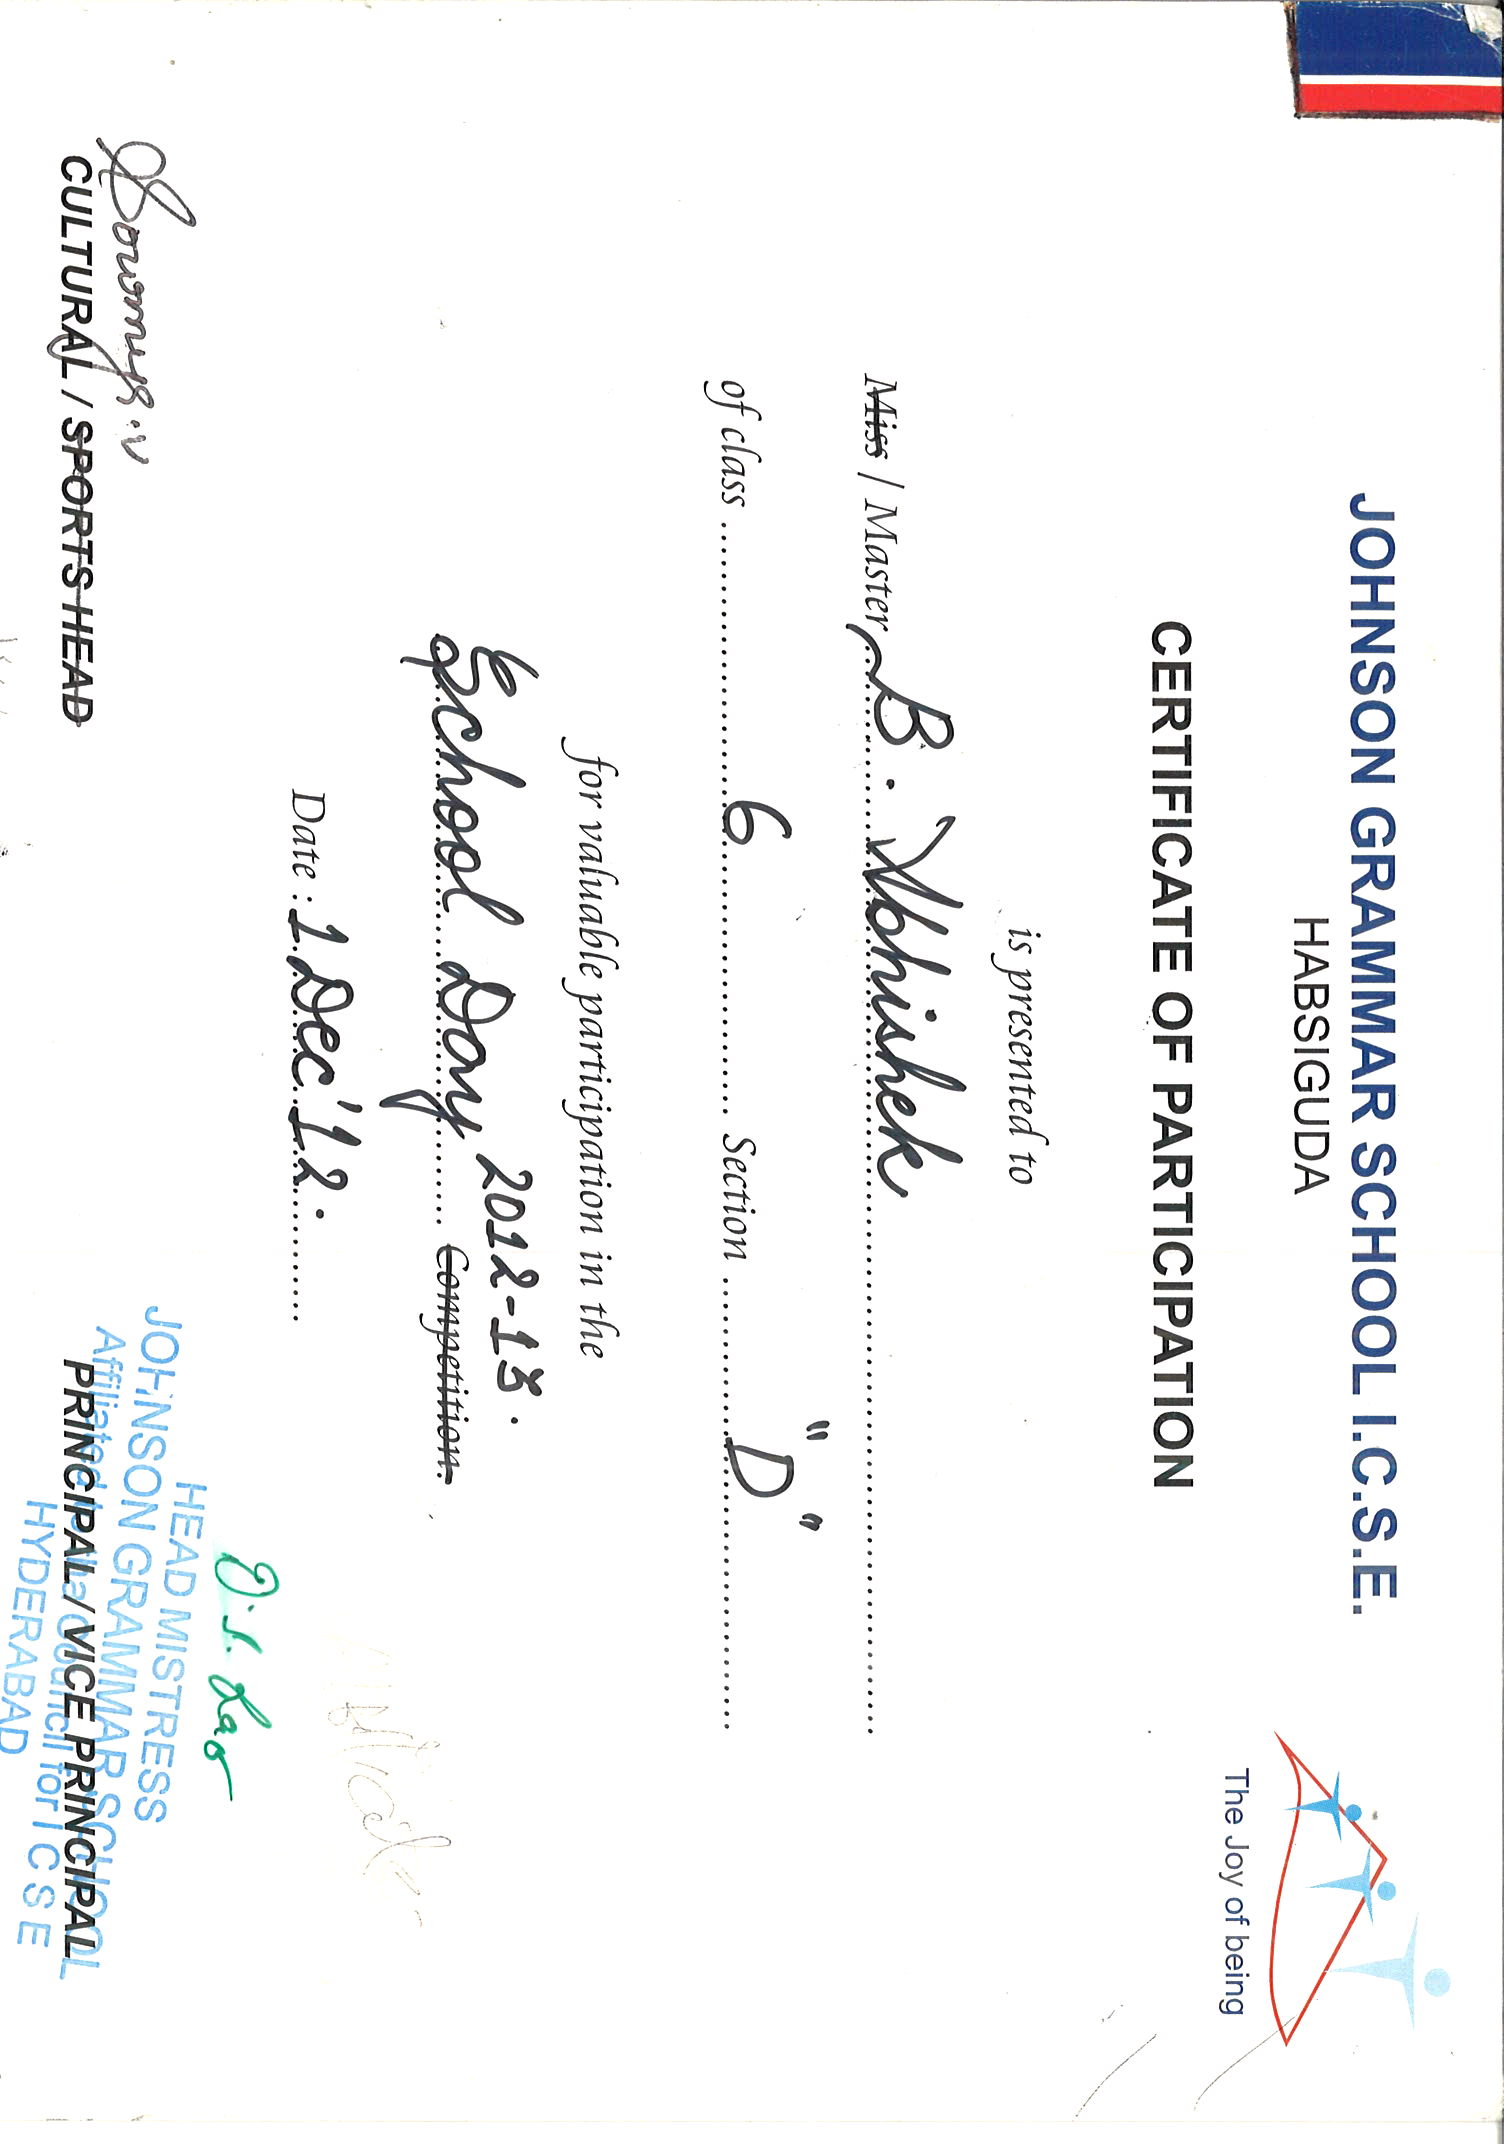 JOHNSON GRAMMAR SCHOOL I.C.S.E.
HABSIGUDA
The Joy of being
CERTIFICATE OF PARTICIPATION
is presented to
Miss / Master B. Abhishek
of class 6 Section "D"
for valuable participation in the
School Day 2012-13. Competition.
Date : 1 Dec '12.
D.S. Rao
HEAD MISTRESS
JOHNSON GRAMMAR SCHOOL
Affiliated to tha Council for I C S E
HYDERABAD
Sowmya.V
CULTURAL / SPORTS HEAD
PRINCIPAL / VICE PRINCIPAL